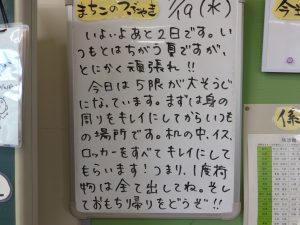 まちこのつぶやき 7/19(水)
いよいよあと2日です。い
つもとはちがう夏ですが、
とにかく頑張れ!!
今日は5限が大そうじ
になっています。まずは身の
周りをキレイにしてからいつも
の場所です。机の中、イス、
ロッカーをすべてキレイにして
もらいます!つまり、1度荷
物は全て出してね。そし
ておもち帰りをどうぞ!!
今
係